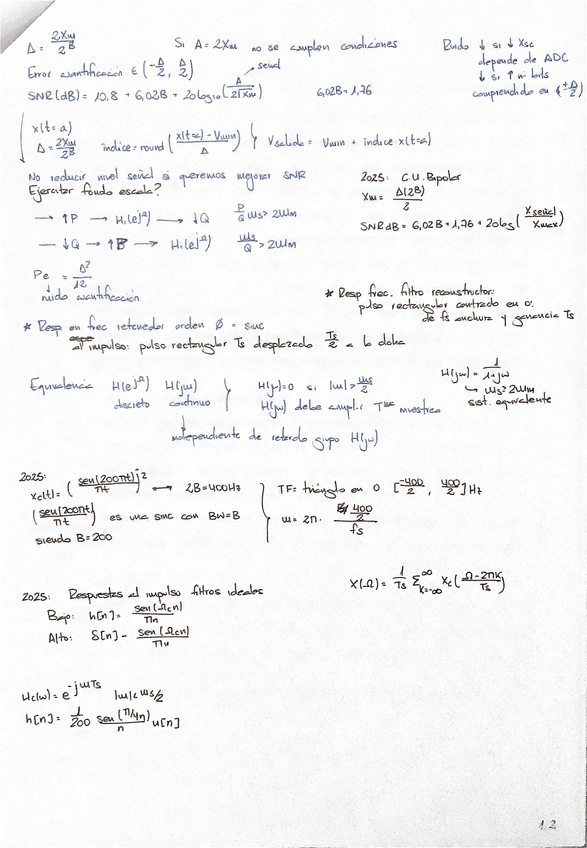 Δ = 2Xm / 2^B
Si A = 2Xm no se cumplen condiciones
Ruido ↓ si ↓ Xsc
depende de ADC
↓ si ↑ nº bits
comprendido en (±Δ/2)
Error cuantificación ∈ (-Δ/2, Δ/2)
señal
SNR(dB) = 10,8 + 6,02B + 20log10(A / 2√Xm)
6,02B + 1,76
x(t=a)
Δ = 2Xm / 2^B
índice = round((x(t=a) - Vmin) / Δ)
Vsalida = Vmin + índice · x(t=a)
No reducir nivel señal si queremos mejorar SNR
Ejercitar fondo escala?
→ ↑P → Hi(e^jΩ) → ↓Q P/Q ωs > 2ωm
→ ↓Q → ↑P → Hi(e^jΩ) ωs/Q > 2ωm
2025: C.U. Bipolar
Xm = Δ(2^B) / 2
SNRdB = 6,02B + 1,76 + 20log(Xseñal / Xmax)
Pe = Δ² / 12
ruido cuantificación
* Resp frec. filtro reconstructor:
pulso rectangular centrado en 0.
de fs anchura y ganancia Ts
* Resp en frec retenedor orden Ø = sinc
al impulso: pulso rectangular Ts desplazado Ts/2 a la dcha
Equivalencia H(e^jΩ) H(jω)
discreto continuo
H(jω)=0 si |ω| > ωs/2
H(jω) debe cumplir Tma muestreo
independiente de retardo grupo H(jω)
H(jω) = 1 / 1+jω
↳ ωs > 2ωm
sist. equivalente
2025:
xc(t) = (sen(200πt) / πt)² → 2B = 400Hz
(sen(200πt) / πt) es una sinc con BW=B
siendo B = 200
TF = triángulo en 0 [-400/2, 400/2] Hz
ω = 2π · (400/2) / fs
X(Ω) = 1/Ts Σ k=-∞ ∞ Xc((Ω - 2πk) / Ts)
2025: Respuestas al impulso filtros ideales
Bajo: h[n] = sen(Ωcn) / πn
Alto: δ[n] - sen(Ωcn) / πn
Hc(ω) = e^-jωTs |ω| < ωs/2
h[n] = 1/200 sen(π/4n) / n u[n]
12